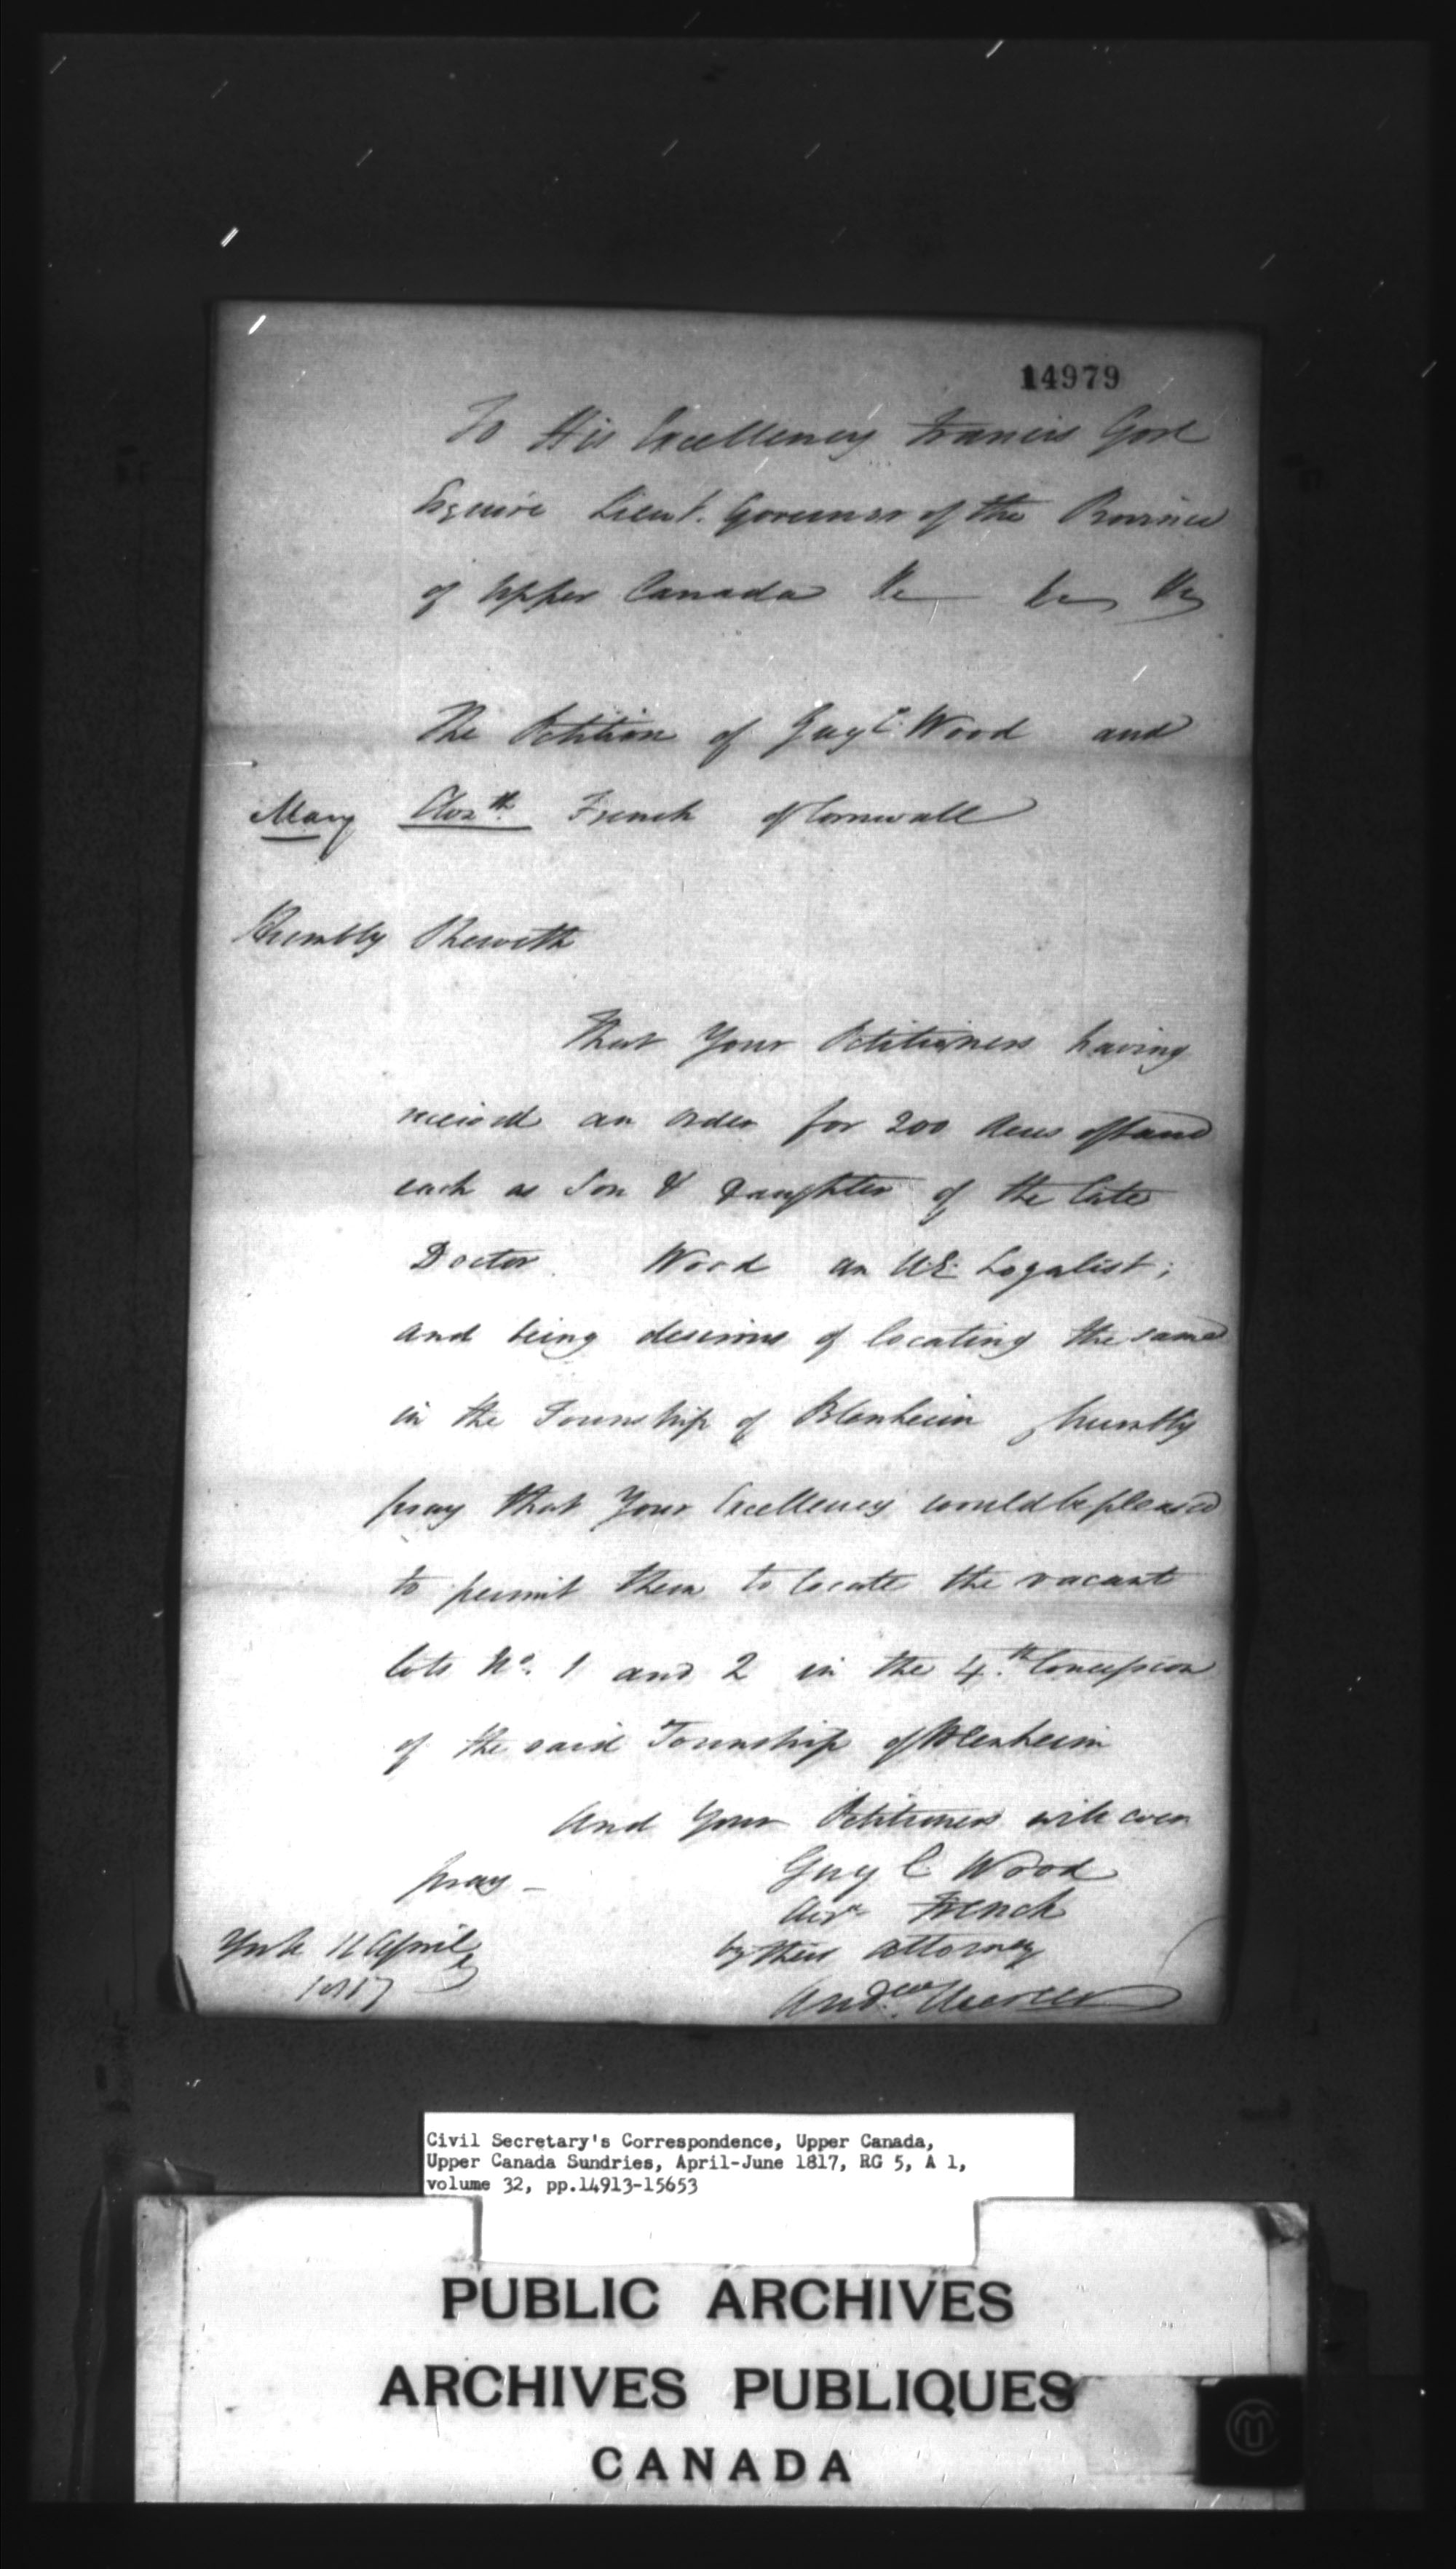 14979
To His Excellency Francis Gore
Esquire Lieut. Governor of the Province
of Upper Canada &c &c &c
The Petition of Guy C. Wood and
Mary French of Cornwall
Humbly Sheweth
That Your Petitioners having
received an order for 200 Acres of Land
each as Son & Daughter of the late
Doctor Wood an UE. Loyalist;
and being desirous of locating the same
in the Township of Blenheim humbly
pray that Your Excellency would be pleased
to permit them to locate the vacant
lots No. 1 and 2 in the 4.th Concession
of the said Township of Blenheim
And Your Petitioners will ever
pray -
Guy C. Wood
French
by their attorney
Andew. Mercer
York 11 April
1817
Civil Secretary's Correspondence, Upper Canada,
Upper Canada Sundries, April-June 1817, RG 5, A 1,
volume 32, pp.14913-15653
PUBLIC ARCHIVES
ARCHIVES PUBLIQUES
CANADA